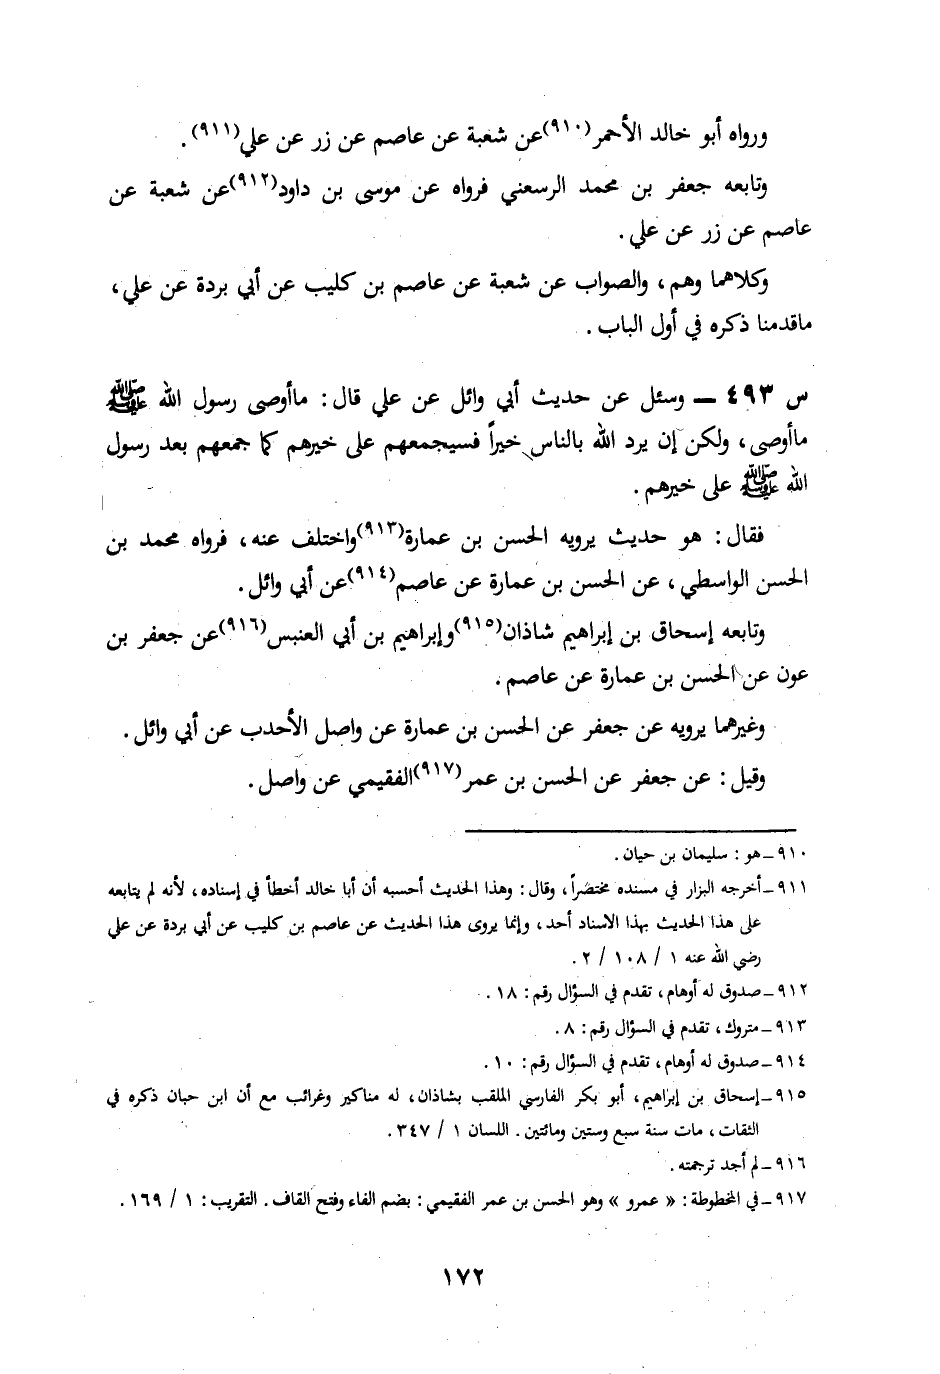 ورواه أبو خالد الأحمر(٩١٠)عن شعبة عن عاصم عن زر عن علي(٩١١).
وتابعه جعفر بن محمد الرسعني فرواه عن موسى بن داود(٩١٢)عن شعبة عن
عاصم عن زر عن علي.
وكلاهما وهم، والصواب عن شعبة عن عاصم بن كليب عن أبي بردة عن علي،
ماقدمنا ذكره في أول الباب.
س ٤٩٣ ــ وسئل عن حديث أبي وائل عن علي قال: ماأوصى رسول الله ﷺ
ماأوصى، ولكن إن يرد الله بالناس خيراً فسيجمعهم على خيرهم كما جمعهم بعد رسول
الله ﷺ على خيرهم.
فقال: هو حديث يرويه الحسن بن عمارة(٩١٣)واختلف عنه، فرواه محمد بن
الحسن الواسطي، عن الحسن بن عمارة عن عاصم(٩١٤)عن أبي وائل.
وتابعه إسحاق بن إبراهيم شاذان(٩١٥)وإبراهيم بن أبي العنبس(٩١٦)عن جعفر بن
عون عن الحسن بن عمارة عن عاصم.
وغيرهما يرويه عن جعفر عن الحسن بن عمارة عن واصل الأحدب عن أبي وائل.
وقيل: عن جعفر عن الحسن بن عمر(٩١٧)الفقيمي عن واصل.
٩١٠ـ هو: سليمان بن حيان.
٩١١ـ أخرجه البزار في مسنده مختصراً، وقال: وهذا الحديث أحسبه أن أبا خالد أخطأ في إسناده، لأنه لم يتابعه
على هذا الحديث بهذا الاسناد أحد، وإنما يروى هذا الحديث عن عاصم بن كليب عن أبي بردة عن علي
رضي الله عنه ١ / ١٠٨ / ٢.
٩١٢ـ صدوق له أوهام، تقدم في السؤال رقم: ١٨.
٩١٣ـ متروك، تقدم في السؤال رقم: ٨.
٩١٤ـ صدوق له أوهام، تقدم في السؤال رقم: ١٠.
٩١٥ـ إسحاق بن إبراهيم، أبو بكر الفارسي الملقب بشاذان، له مناكير وغرائب مع أن ابن حبان ذكره في
الثقات، مات سنة سبع وستين ومائتين. اللسان ١ / ٣٤٧.
٩١٦ـ لم أجد ترجمته.
٩١٧ـ في المخطوطة: « عمرو » وهو الحسن بن عمر الفقيمي: بضم الفاء وفتح القاف. التقريب: ١ / ١٦٩.
١٧٢